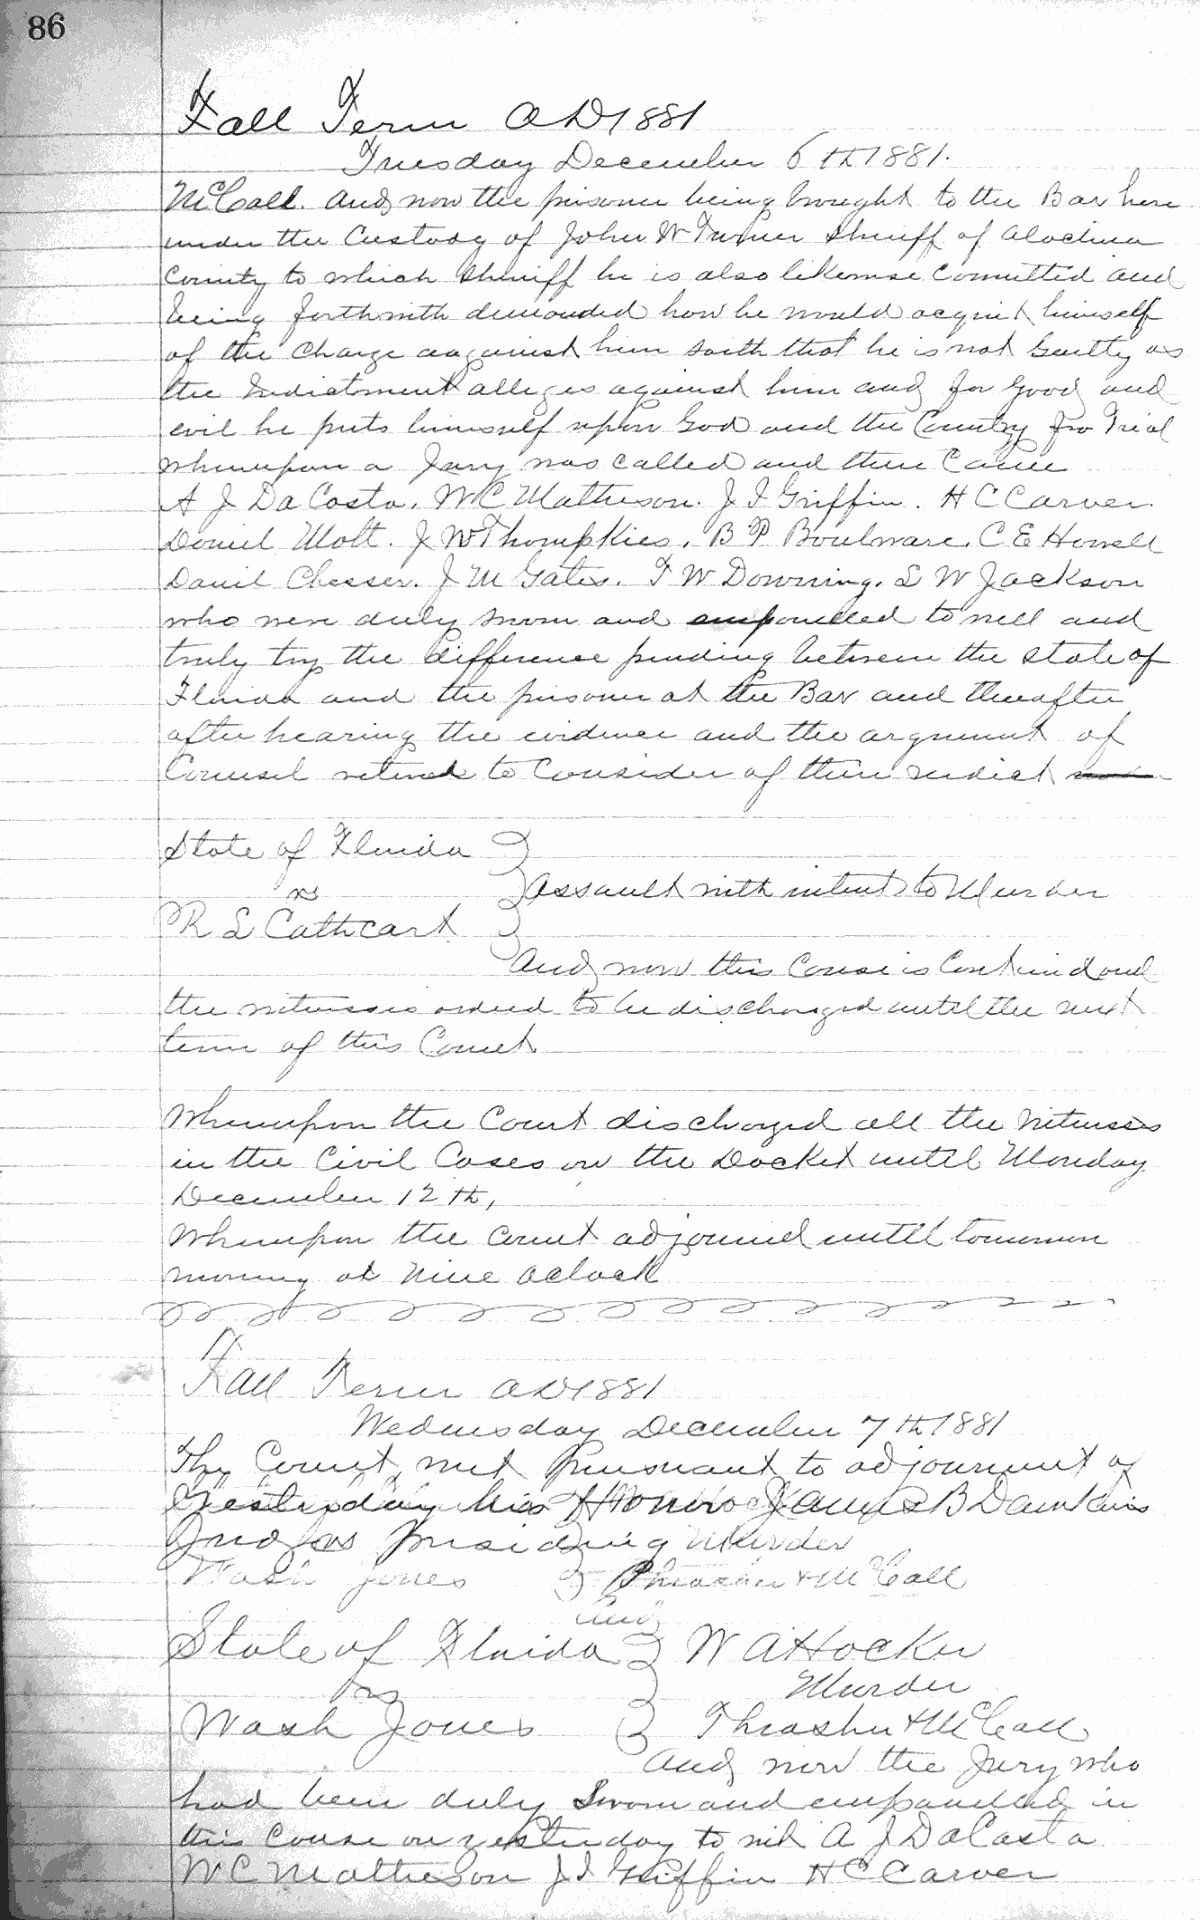 86
Fall Term AD 1881
Tuesday December 6th 1881.
McCall. And now the prisoner being brought to the Bar here
under the Custody of John W Turner Sheriff of Alachua
County to which Sheriff he is also likewise Committed and
being forthwith demanded how he would acquit himself
of the Charge aagainst him saith that he is not Guilty as
the Indictment alleges against him and for Good and
evil he puts himself upon God and the Country for Trial
whereupon a Jury was called and then Came
A J DaCosta. W C Matheson. J I Griffin. H C Carver.
Daniel Mott. J W Thompkies. B P Boulware. C E Howell
Daniel Chesser. J M Gates. T W Downing. S W Jackson
who were duly sworn and empanelled to well and
truly try the difference pending between the State of
Florida and the prisoner at the Bar and thereafter
after hearing the evidence and the argument of
Counsel retired to Consider of their verdict
State of Florida
vs Assault with intent to Murder
R L Cathcart
And now this Cause is Continued and
the witnesses ordered to be discharged until the next
term of this Court
Whereupon the Court discharged all the witnesses
in the Civil Cases on the Docket until Monday
December 12th,
Whereupon the Court adjourned until tomorrow
morning at Nine oclock
Fall Term AD 1881
Wednesday December 7th 1881
The Court met Pursuant to adjournment of
Yesterday his Honor James B Dawkins
Judge presiding Murder
Wash Jones Thrasher & McCall
And
State of Florida W A Hocker
vs Murder
Wash Jones Thrasher & McCall
And now the Jury who
had been duly Sworn and empanelled in
this Cause on yesterday to wit A J DaCosta
W C Matheson J I Griffin H C Carver